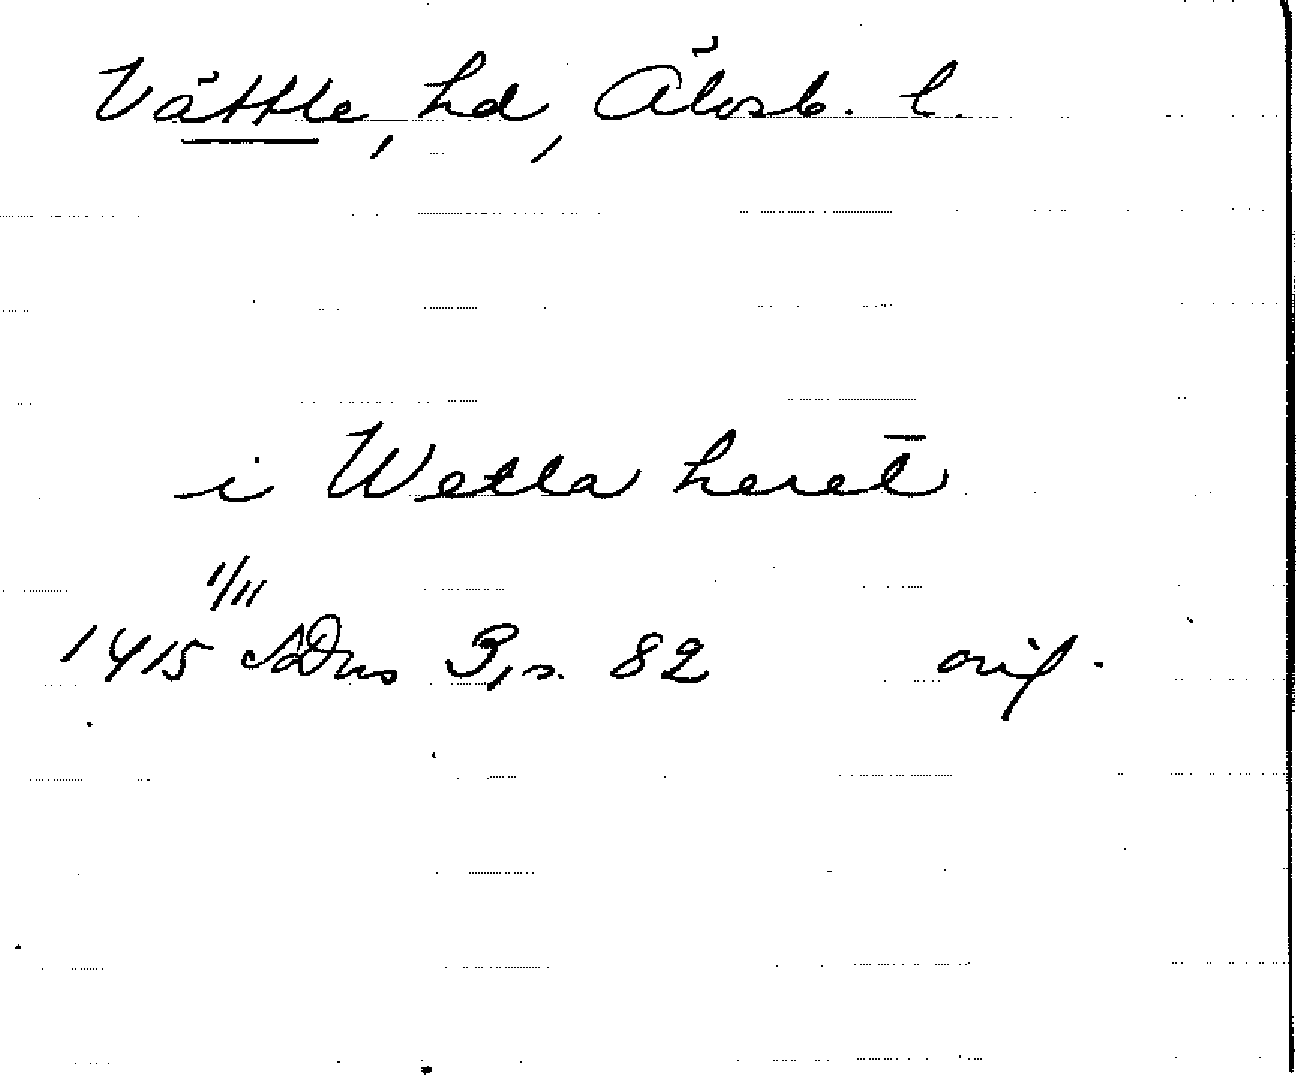 Vättle, hd, Älvsb. l.
i Wetla heret̄
1/11
1415 SDns 3, s. 82 orig.